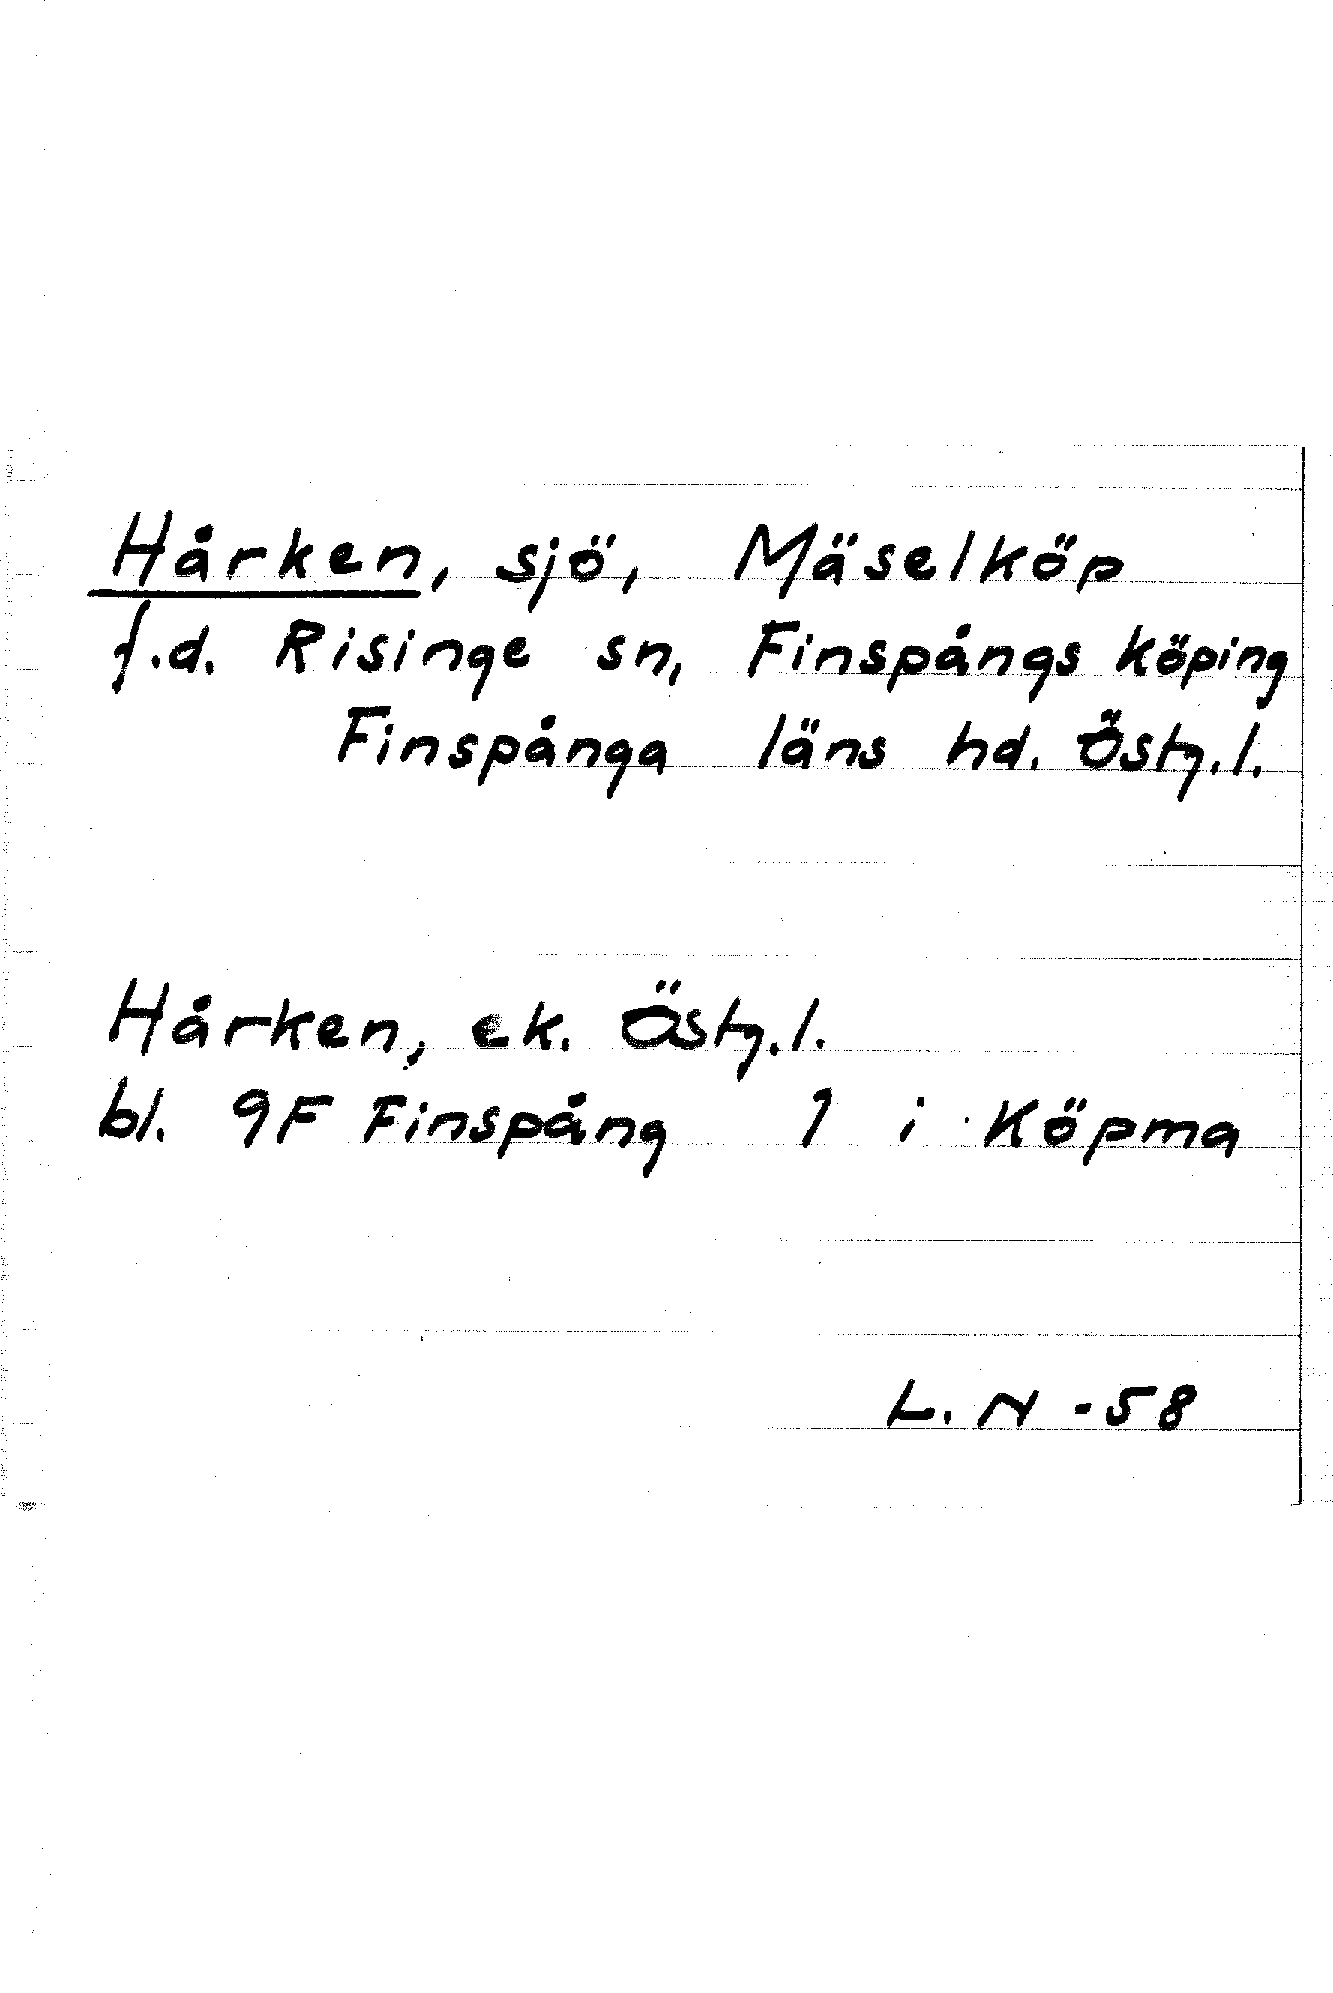 Hårken, sjö, Mäselköp
f.d. Risinge sn, Finspångs köping
Finspånga läns hd. Östg.l.
Hårken, ek. Östg.l.
bl. 9F Finspång 1 i Köpma
L. N -58